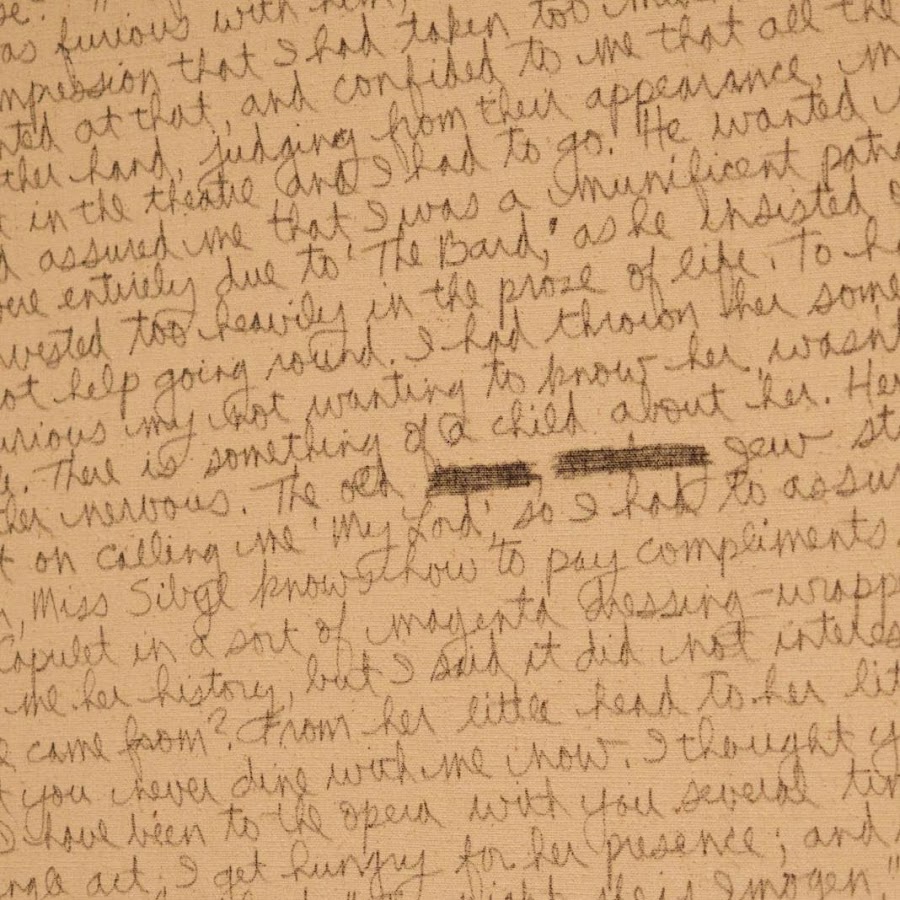 as furious with him,
mpression that I had taken too mu
nted at that, and confided to me that all the
ther hand, judging from their appearance, m
t in the theatre and I had to go. He wanted
d assured me that I was a munificent patr
ere entirely due to 'The Bard,' as he insisted
nvested too heavily in the prose of life. To ha
ot help going round. I had thrown her some
urious my not wanting to know her, wasn't
e. There is something of a child about her. Her
her nervous. The old Jew st
t on calling me 'My Lord', so I had to assu
n, Miss Sibyl knows how to pay compliments.
Capulet in a sort of magenta dressing-wrapp
me her history, but I said it did not interes
e came from? From her little head to her lit
t you never dine with me now. I thought y
I have been to the opera with you several tim
ngle act, I get hungry for her presence; and
might she is Imogen,"